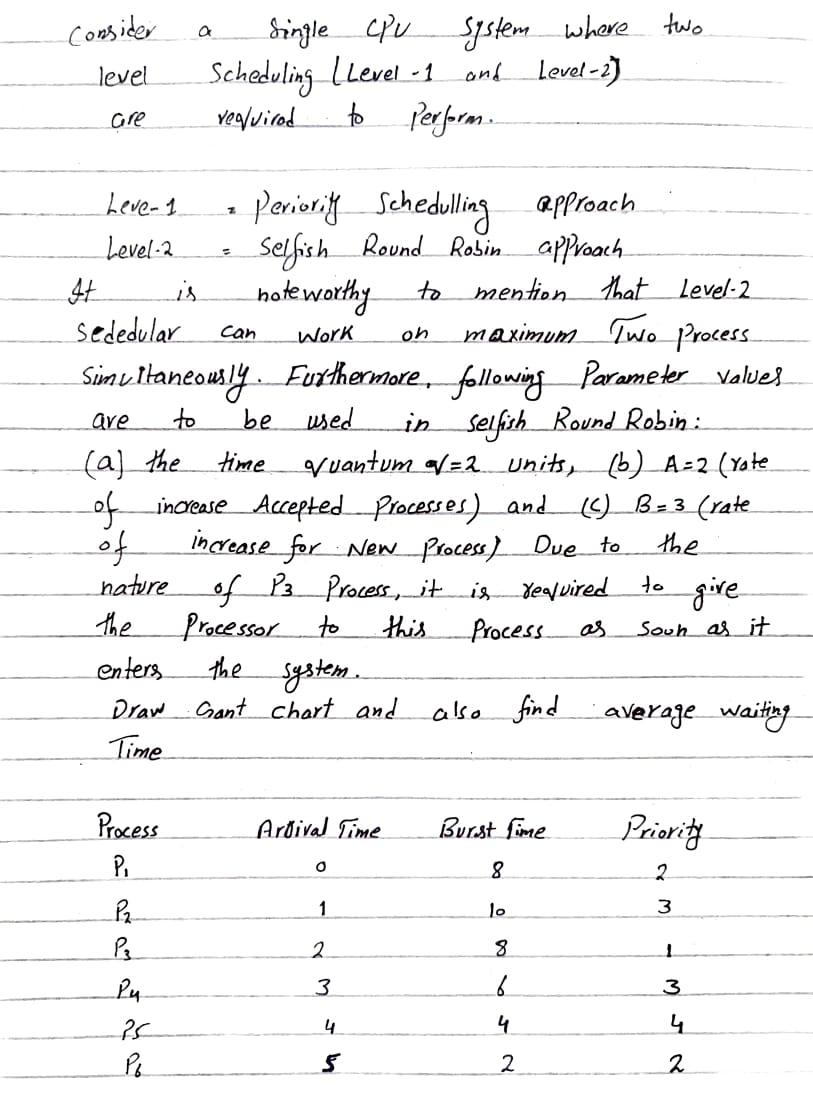 Consider a Single CPU System where two
level Scheduling (Level-1 and Level-2)
are required to Perform.
Leve-1 = Periority Schedulling approach
Level-2 = Selfish Round Robin approach
It is noteworthy to mention that Level-2
Sededular can work on maximum Two Process
Simultaneously. Furthermore, following Parameter values
are to be used in selfish Round Robin:
(a) the time quantum q=2 units, (b) A=2 (rate
of increase Accepted Processes) and (c) B=3 (rate
of increase for New Process) Due to the
nature of P3 Process, it is required to give
the Processor to this Process as soon as it
enters the system.
Draw Gant chart and also find average waiting
Time
Process Arrival Time Burst Time Priority
P1 0 8 2
P2 1 10 3
P3 2 8 1
P4 3 6 3
P5 4 4 4
P6 5 2 2